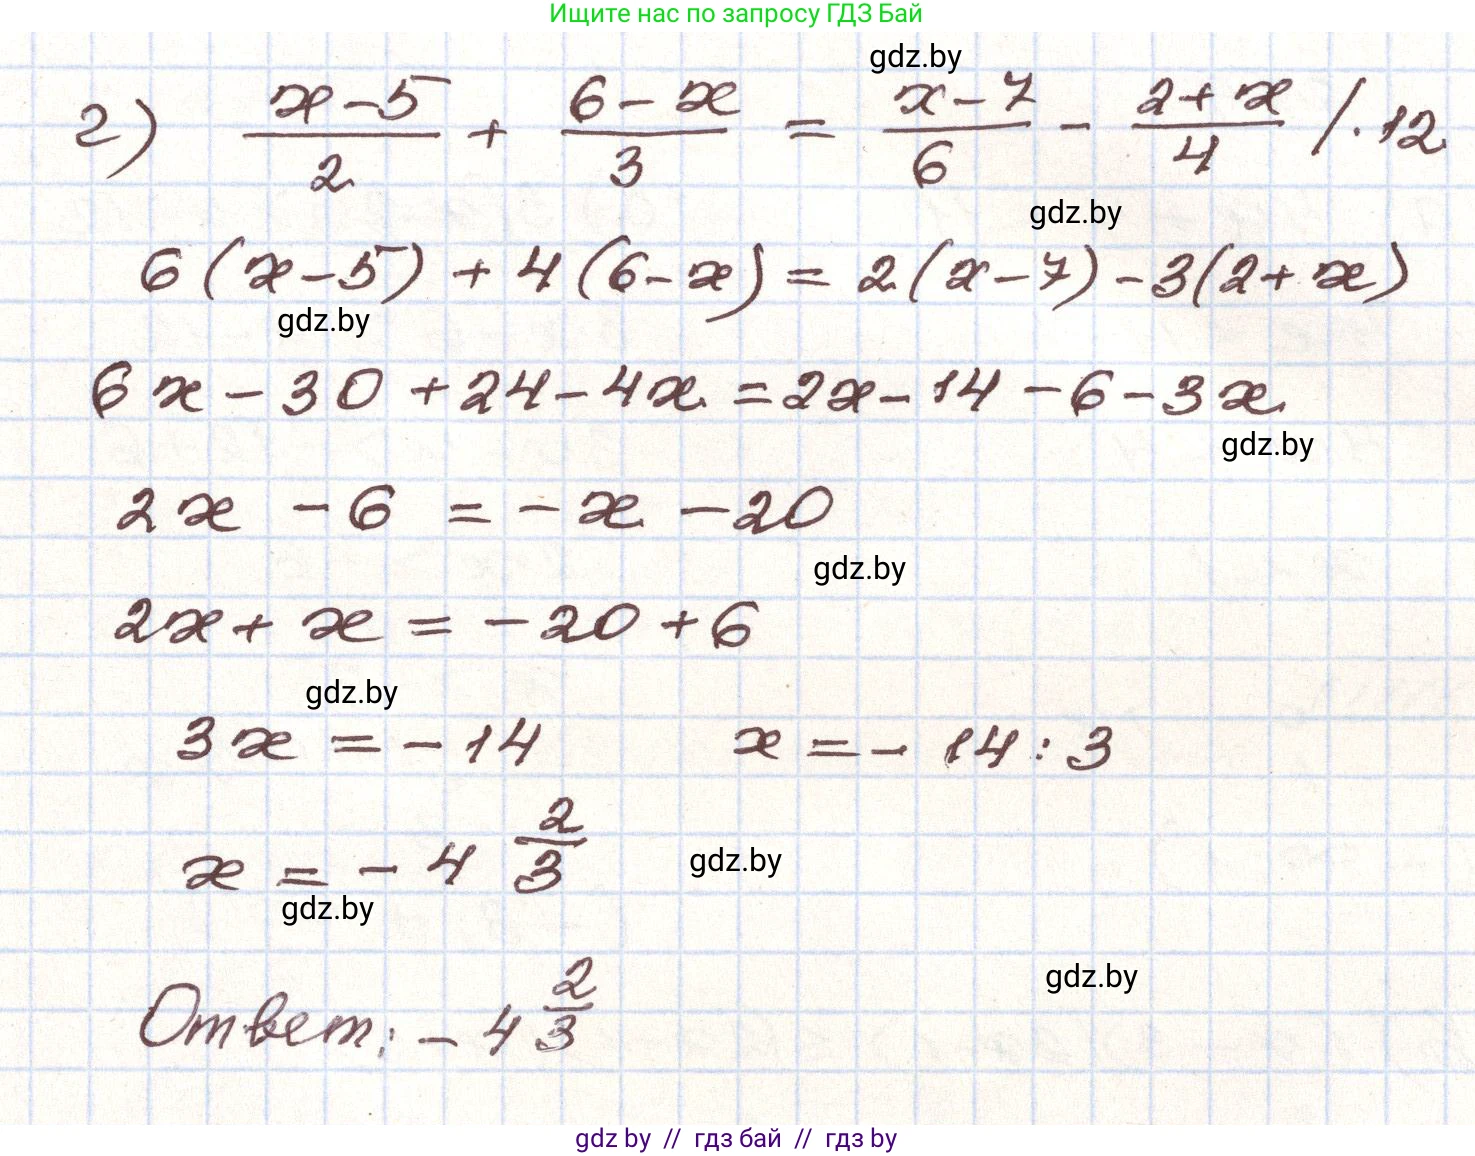 Ищите нас по запросу ГДЗ Бай
gdz.by
г) (x-5)/2 + (6-x)/3 = (x-7)/6 - (2+x)/4 /·12
gdz.by
6(x-5)+4(6-x)=2(x-7)-3(2+x)
gdz.by
6x-30+24-4x=2x-14-6-3x
gdz.by
2x -6 = -x -20
gdz.by
2x+x=-20+6
gdz.by
3x=-14 x=-14:3
x=-4 2/3
gdz.by
gdz.by
gdz.by
Ответ: -4 2/3
gdz by // гдз бай // гдз by